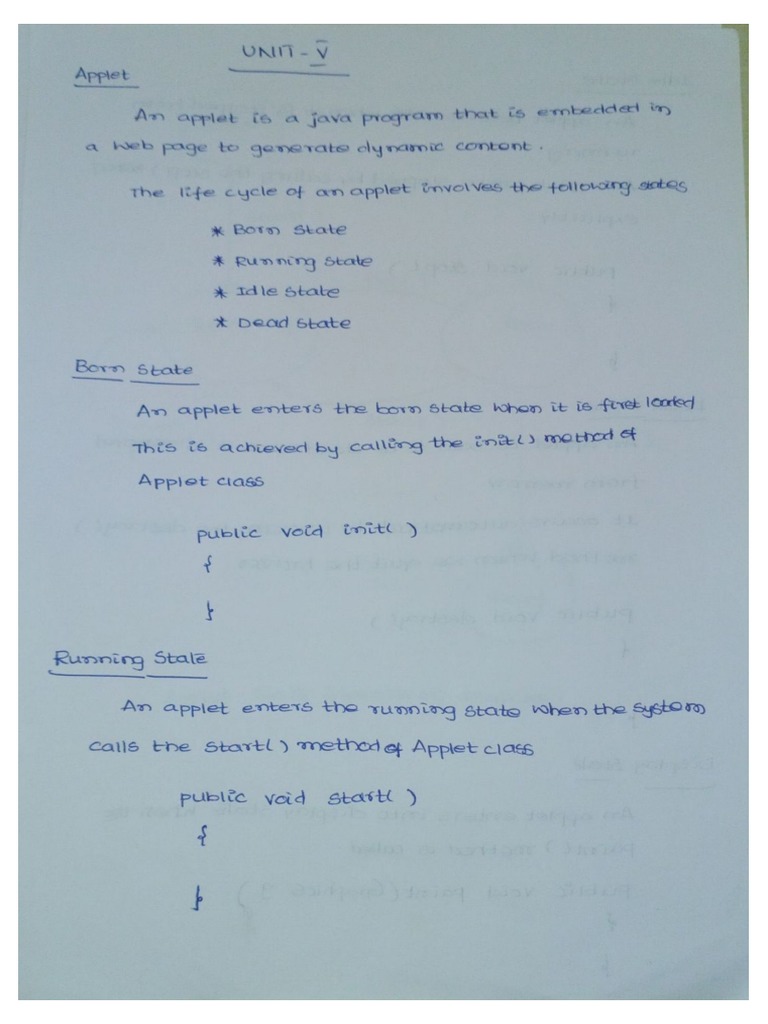 UNIT - V
Applet
An applet is a java program that is embedded in
a web page to generate dynamic content.
The life cycle of an applet involves the following states
* Born state
* Running state
* Idle state
* Dead state
Born State
An applet enters the born state when it is first loaded
This is achieved by calling the init() method of
Applet class
public void init( )
{
}
Running State
An applet enters the running state when the system
calls the start( ) method of Applet class
public void start( )
{
}